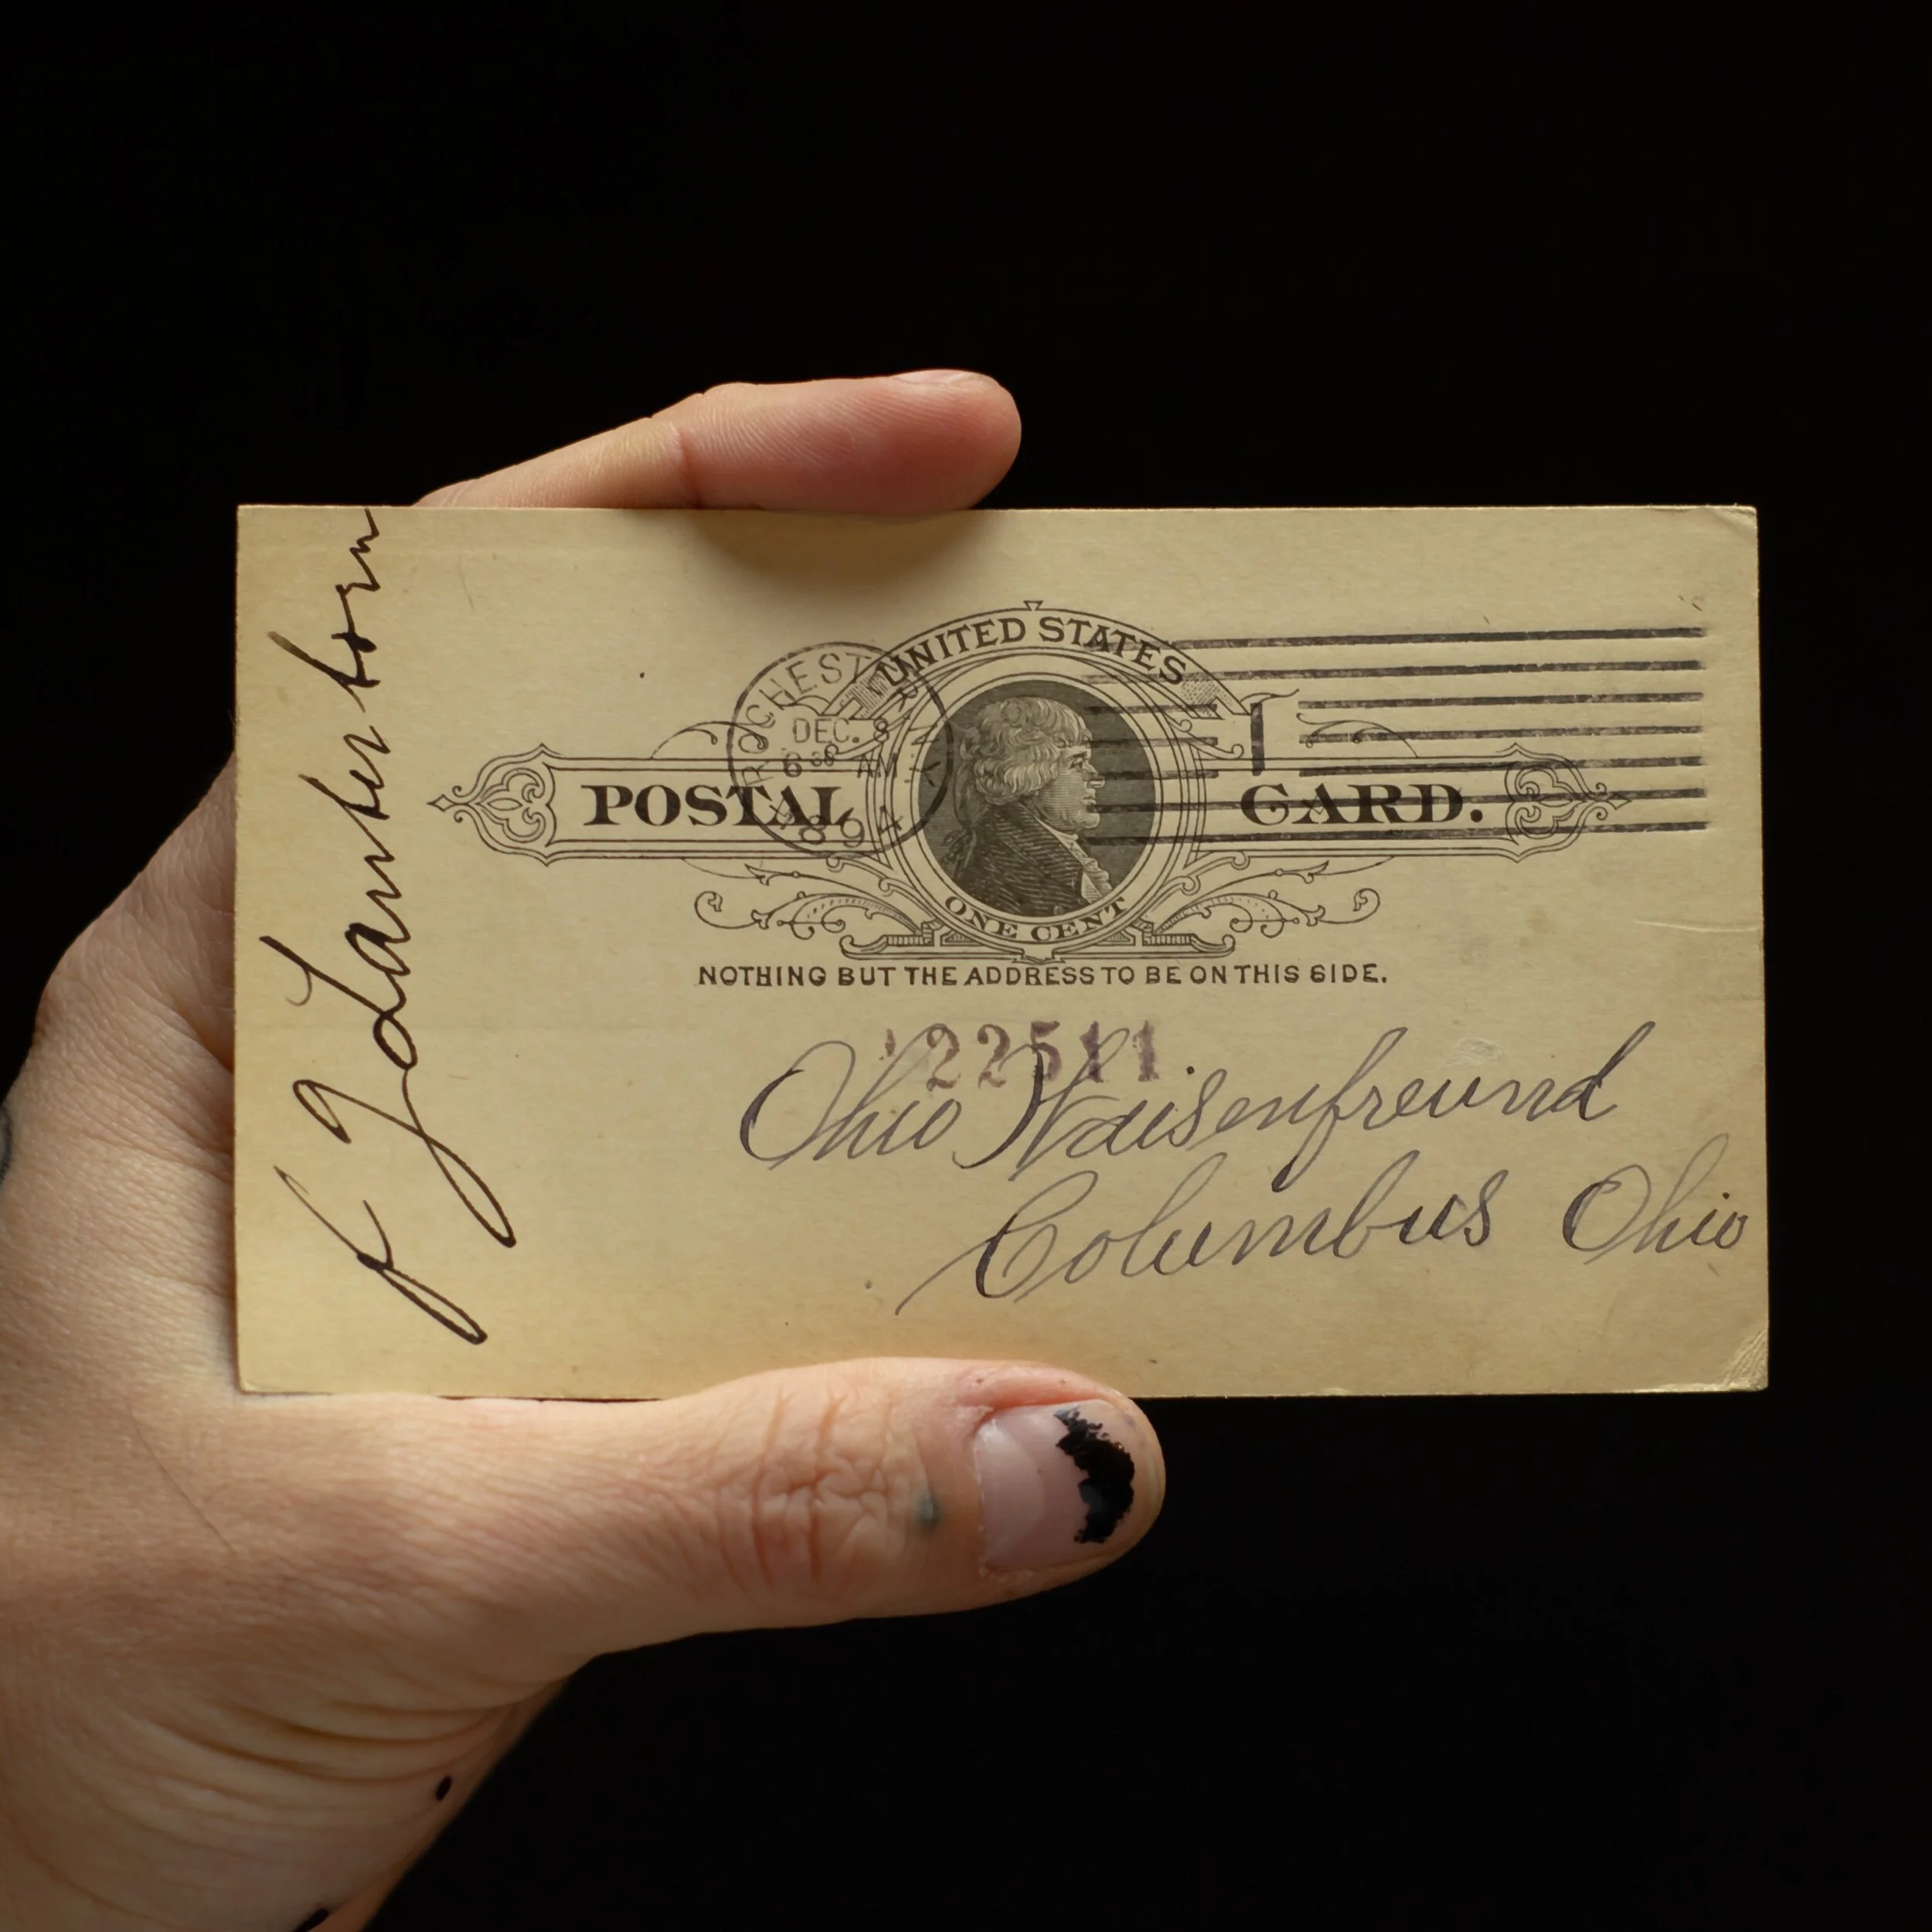 UNITED STATES
ROCHESTER N.Y.
DEC. 8
6 30 AM
1894
1
POSTAL CARD.
ONE CENT
NOTHING BUT THE ADDRESS TO BE ON THIS SIDE.
22511
Ohio Waisenfreund
Columbus Ohio